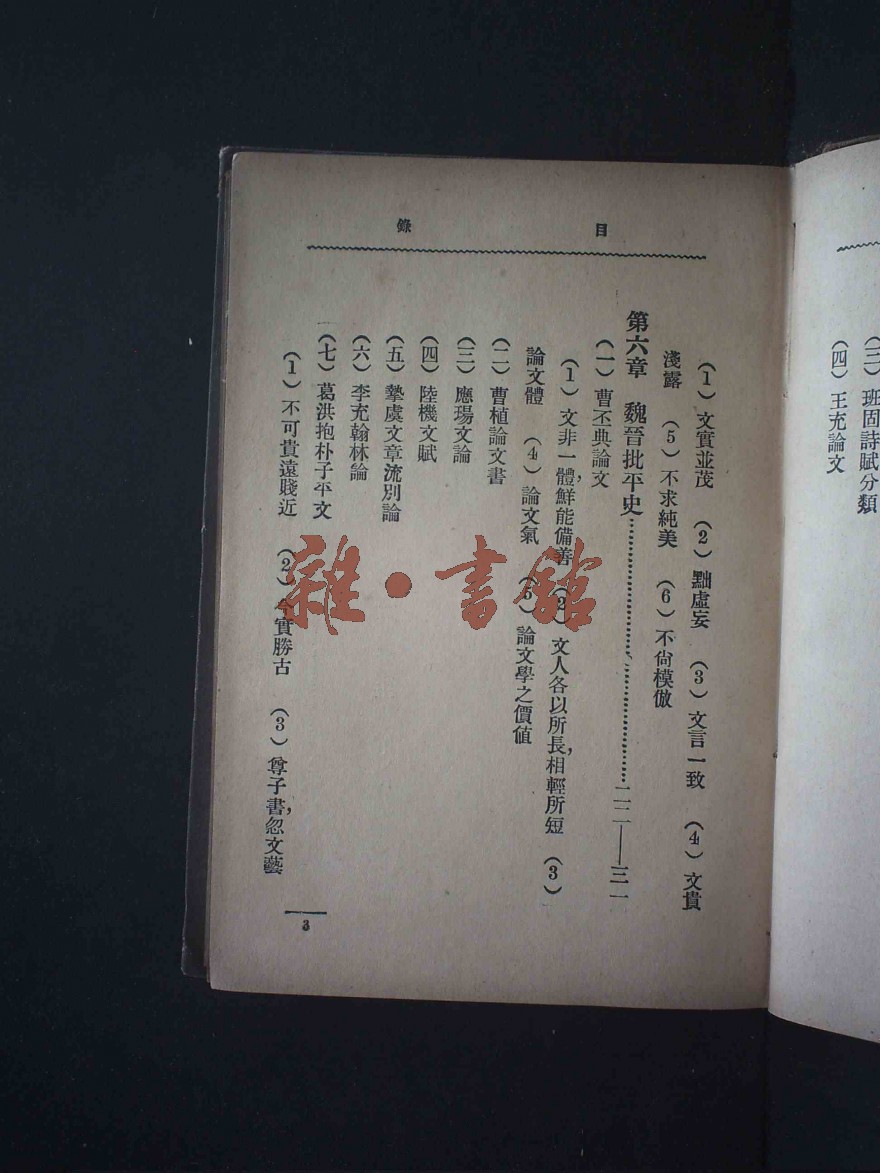 (三) 班固詩賦分類
(四) 王充論文
目錄
(1) 文實並茂 (2) 黜虛妄 (3) 文言一致 (4) 文貴
淺露 (5) 不求純美 (6) 不尙模倣
第六章 魏晉批平史…………………………二二——三一
(一) 曹丕典論文
(1) 文非一體,鮮能備善 (2) 文人各以所長,相輕所短 (3)
論文體 (4) 論文氣 (5) 論文學之價値
(二) 曹植論文書
(三) 應瑒文論
(四) 陸機文賦
(五) 摯虞文章流別論
(六) 李充翰林論
(七) 葛洪抱朴子平文
(1) 不可貴遠賤近 (2) 今實勝古 (3) 尊子書,忽文藝
3
雜·書館